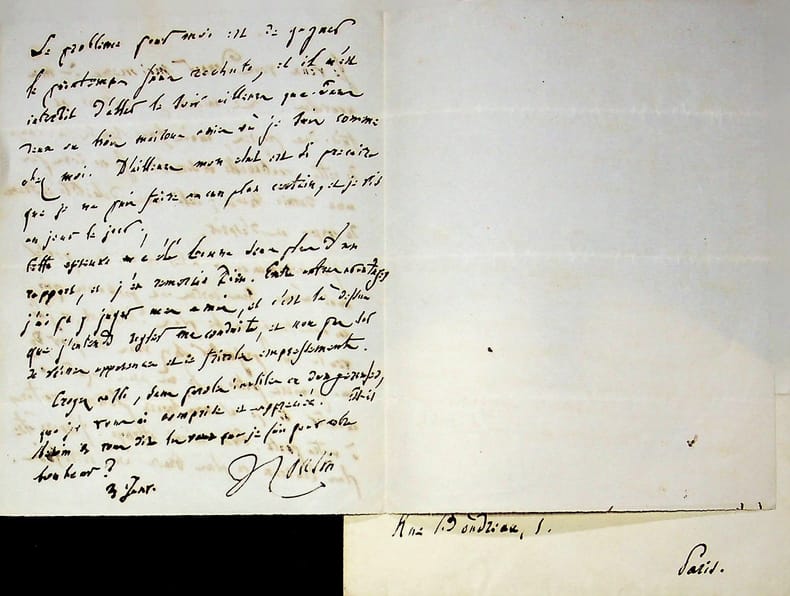 Le problème pour moi est de gagner
le printemps sans rechute, et il m'est
interdit d'aller le soir ailleurs que dans
une ou trois maisons amies où je suis comme
chez moi. D'ailleurs mon état est si précaire
que je ne puis faire aucun plan certain, et je vis
au jour le jour.
Cette épreuve m'a été bonne sous plus d'un
rapport, et j'en remercie Dieu. Entre autres avantages
j'ai pu y juger mes amis, et c'est là dessus
que j'entends régler ma conduite, et non pas sur
de vaines apparences et de frivoles empressements.
Croyez celle, sans paroles inutiles
que je vous ai comprise et appréciée.
besoin de vous dire les vœux que je fais pour votre
bonheur?
3 Janv.
Rue Boudreau, 1.
Paris.